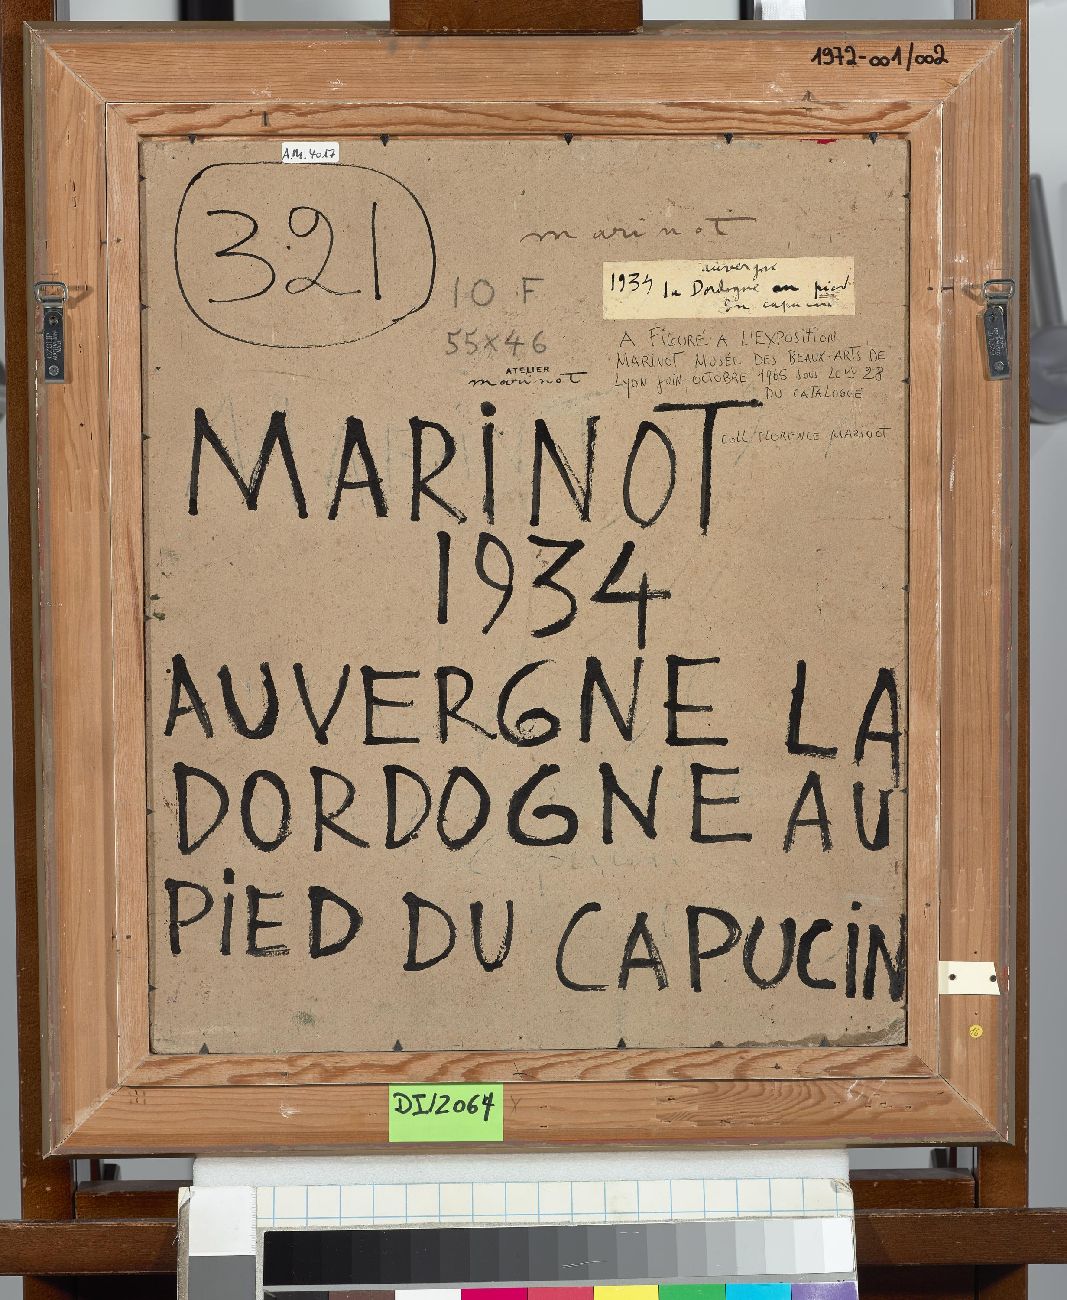 1972-001/002
A.M. 4017
321
marinot
10 F
55x46
auvergne
1934 la Dordogne au pied
du capucin
A FIGURÉ A L'EXPOSITION
MARINOT MUSÉE DES BEAUX-ARTS DE
Lyon Juin, OCTOBRE 1965 SOUS LE No 28
DU CATALOGUE
ATELIER
marinot
COLL FLORENCE MARINOT
MARiNOT
1934
AUVERGNE LA
DORDOGNE AU
PiED DU CAPUCiN
DI/2064